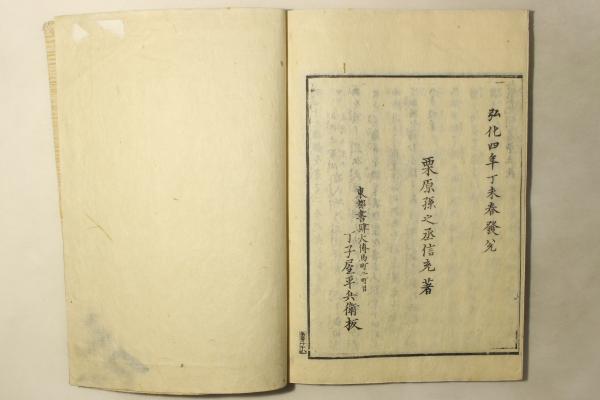 弘化四年丁未春發兌
栗原孫之丞信充著
東都書肆大傳馬町二町目
丁子屋平兵衛板